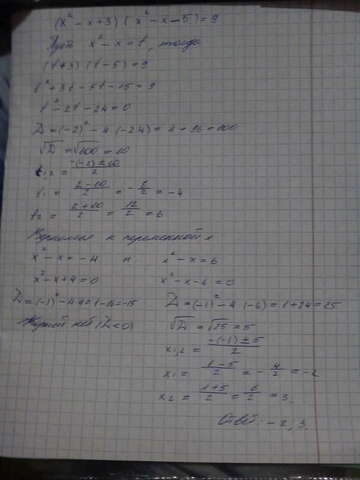 (x² - x + 3)(x² - x - 5) = 9
Пусть x² - x = t, тогда
(t + 3)(t - 5) = 9
t² + 3t - 5t - 15 = 9
t² - 2t - 24 = 0
D = (-2)² - 4(-24) = 4 + 96 = 100
√D = √100 = 10
t₁,₂ = (-(-2) ± 10)/2
t₁ = (2 - 10)/2 = -8/2 = -4
t₂ = (2 + 10)/2 = 12/2 = 6
Вернемся к переменной x
x² - x = -4 и x² - x = 6
x² - x + 4 = 0 x² - x - 6 = 0
D = (-1)² - 4·4 = 1 - 16 = -15 D = (-1)² - 4(-6) = 1 + 24 = 25
Корней нет (D < 0) √D = √25 = 5
x₁,₂ = (-(-1) ± 5)/2
x₁ = (1 - 5)/2 = -4/2 = -2
x₂ = (1 + 5)/2 = 6/2 = 3.
Ответ: -2, 3.